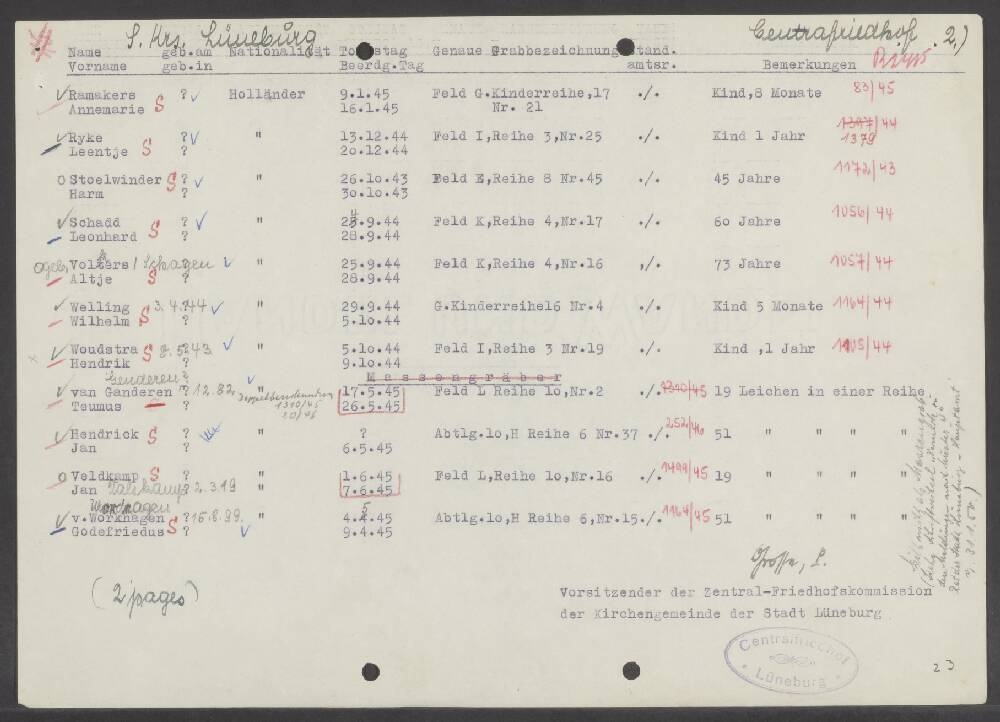 S. Krs. Lüneburg Centralfriedhof 2.)
Name geb.am Nationalität Todestag Genaue Grabbezeichnung Stand. Reg.
Vorname geb.in Beerdg.Tag amtsr. Bemerkungen
Ramakers ? Holländer 9.1.45 Feld G.Kinderreihe,17 ./. Kind,8 Monate 83/45
Annemarie S 16.1.45 Nr. 21
Ryke ? " 13.12.44 Feld I,Reihe 3,Nr.25 ./. Kind 1 Jahr 1397/44
Leentje S ? 20.12.44 1379
Stoelwinder S ? " 26.10.43 Feld E,Reihe 8 Nr.45 ./. 45 Jahre 1172/43
Harm ? 30.10.43
Schadd ? " 24.9.44 Feld K,Reihe 4,Nr.17 ./. 60 Jahre 1056/44
Leonhard S ? 28.9.44
geb. Volkers / Schagen " 25.9.44 Feld K,Reihe 4,Nr.16 ,/. 73 Jahre 1057/44
Altje S ? 28.9.44
Welling 3.4.44 " 29.9.44 G.Kinderreihe16 Nr.4 ./. Kind 5 Monate 1164/44
Wilhelm S ? 5.10.44
Woudstra S 2.5.43 " 5.10.44 Feld I,Reihe 3 Nr.19 ./. Kind ,1 Jahr 1105/44
Hendrik ? 9.10.44
Genderen? Massengräber
van Ganderen ? 12.82. " 17.5.45 Feld L Reihe 10,Nr.2 ./. 1310/45 19 Leichen in einer Reihe
Teumus ? 26.5.45
1310/45
Hendrick S ? " ? Abtlg.10,H Reihe 6 Nr.37 ./. 252/46 51 " " " "
Jan ? 6.5.45
Veldkamp S ? " 1.6.45 Feld L,Reihe 10,Nr.16 ./. 1499/45 19 " " " "
Jan ? 2.3.19 " 7.6.45
v.Workhagen ? 15.8.99. " 4.5.45 Abtlg.10,H Reihe 6,Nr.15 ./. 1164/45 51 " " " "
Godefriedus S ? 9.4.45
(2 pages)
Vorsitzender der Zentral-Friedhofskommission
der Kirchengemeinde der Stadt Lüneburg
Centralfriedhof
Lüneburg
23